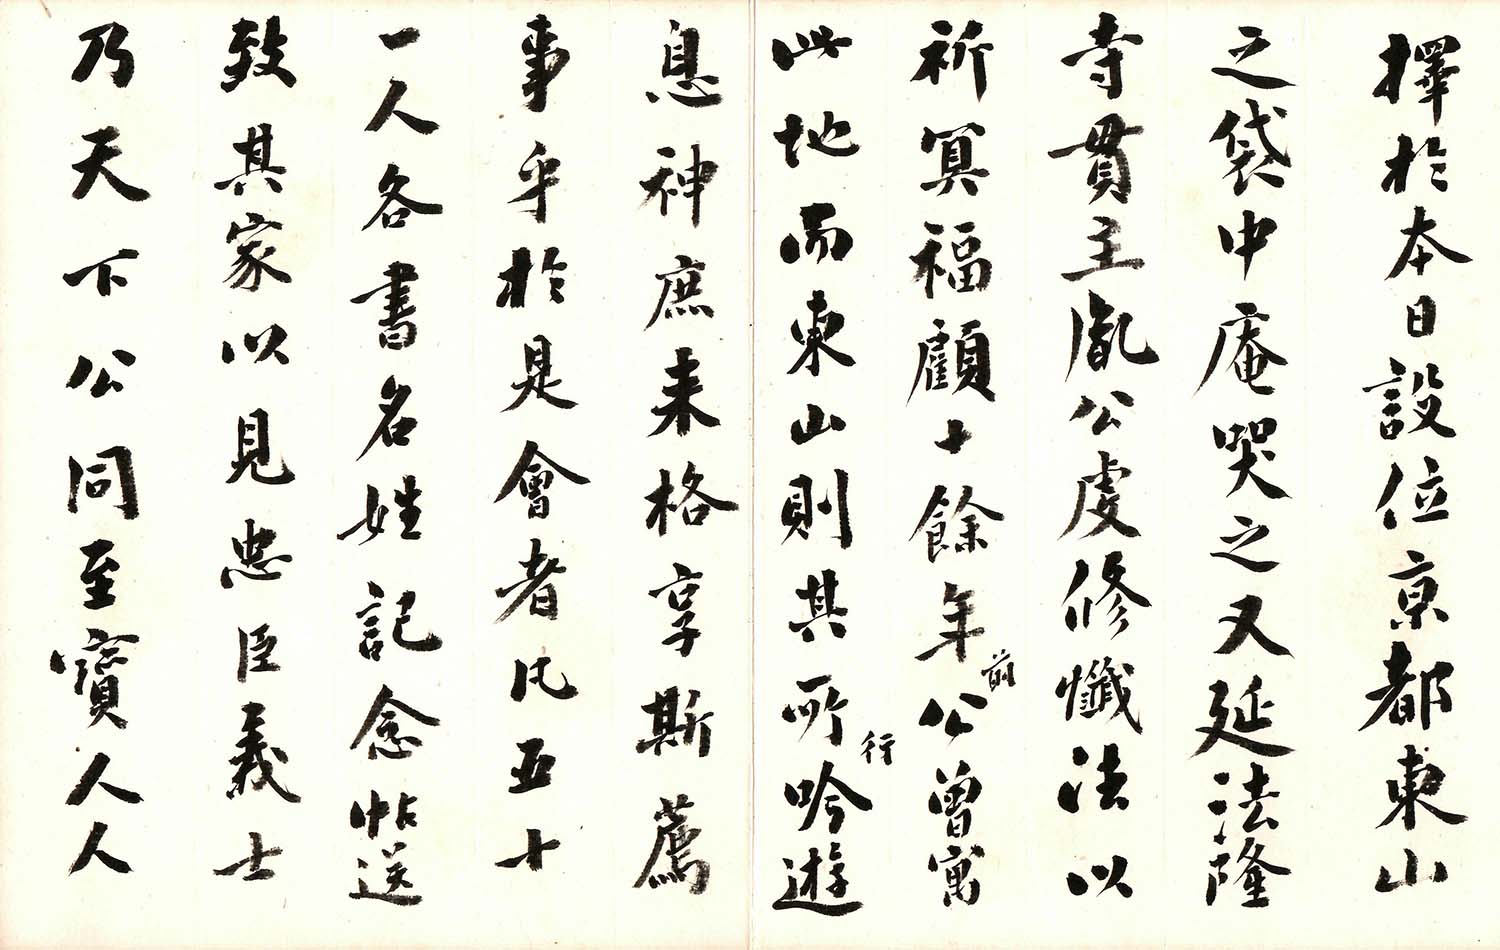 擇於本日設位京都東山
之袋中庵哭之又延法隆
寺貫主胤公虔修懺法以
祈冥福顧十餘年前公曾寓
此地而東山則其所行吟遊
息神庶来格享斯薦
事乎於是會者凡五十
一人各書名姓記念帖送
致其家以見忠臣義士
乃天下公同至寶人人